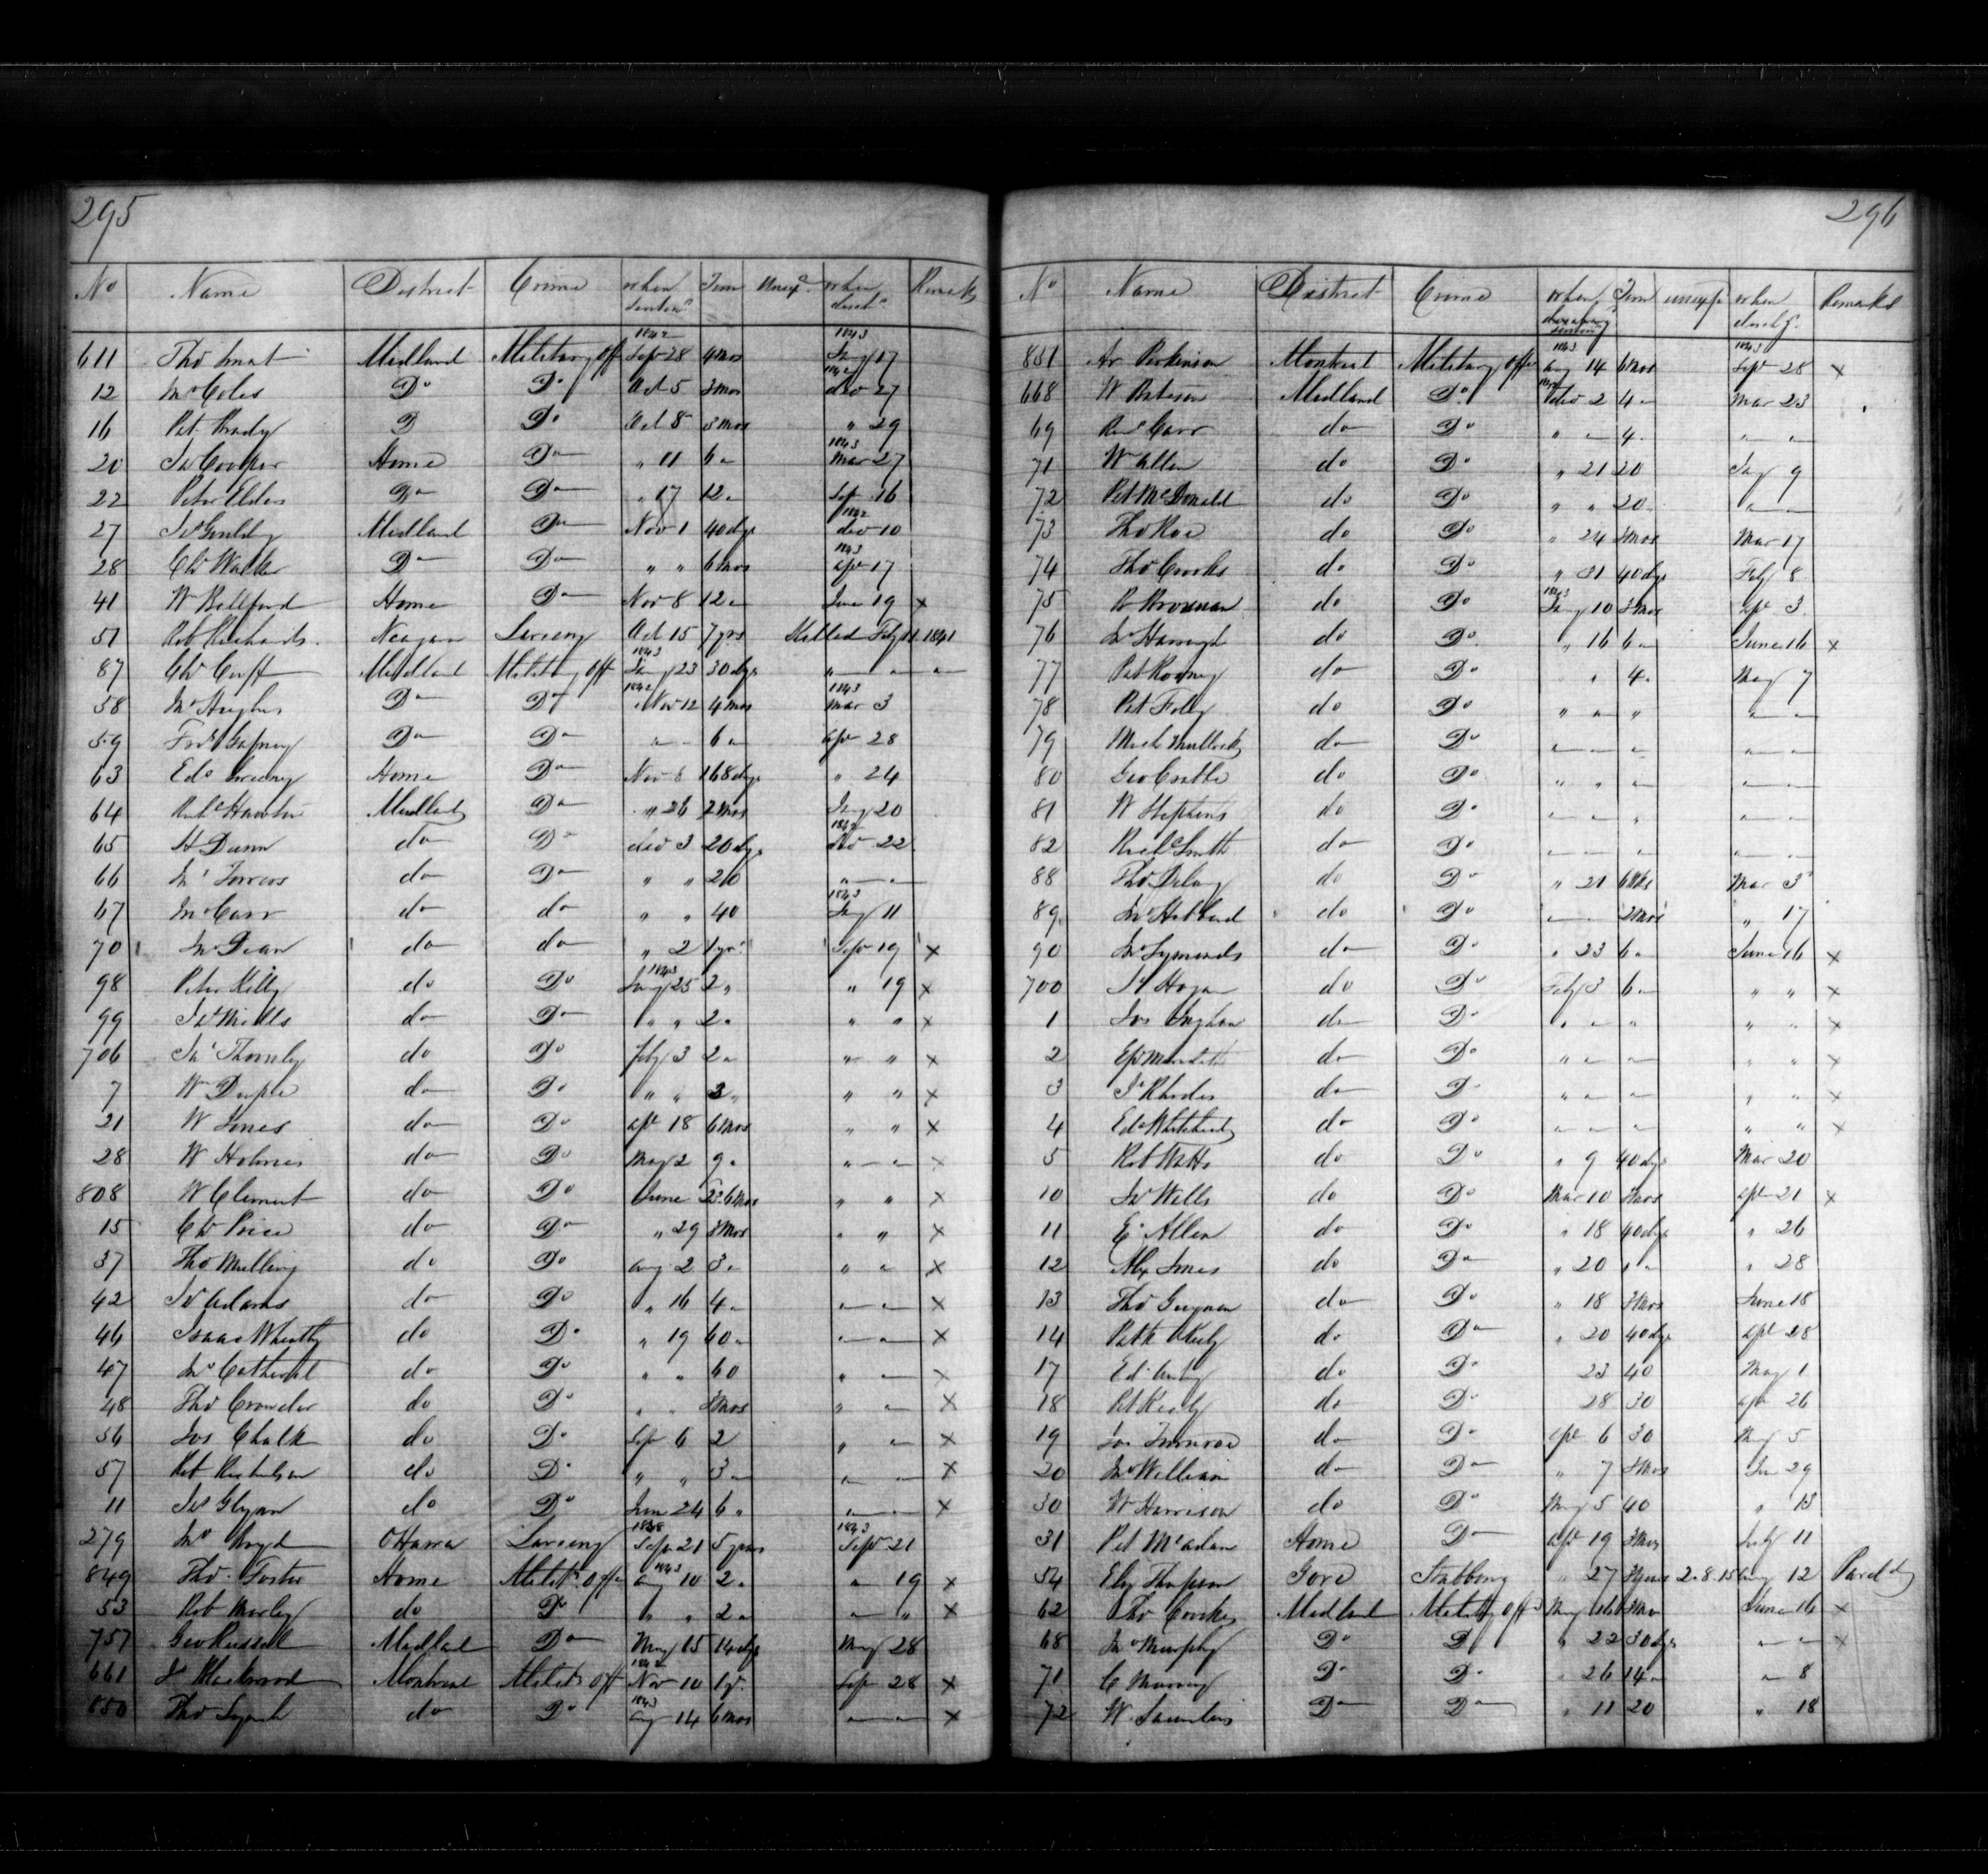 295
No Name District Crime when Sentend Term Unexpd when discd Remarks
1842 1843
611 Thos Smart Midland Military Off Sep 28 4 mos Jany 17
1842
12 Jno Coles Do Do Oct 5 3 mos dec 27
16 Pat Brady D Do Oct 8 3 mos " 29
1843
20 Js Cooper Home Do " 11 6 " Mar 27
22 Peter Elders Do Do " 17 12 " Sep 16
1842
27 Midland Do Nov 1 40 dys dec 10
1843
28 Chs Walker Do Do " " 6 mos apl 17
41 W Bellford Home Do Nov 8 12 " June 19 x
51 Rob Richards Neagara Larceny Oct 15 7 yrs Killed Feby 11 1841
1843
87 Chs Cuff Midland Military Off Jany 23 30 dys " "
1842 1843
58 Jno Hughes Do Do Nov 12 4 mos mar 3
59 Frs Gafney Do Do " 6 " apl 28
63 Ed Home Do Nov 8 168 dys " 24
64 Midland Do " 26 2 mos Jany 20
1842
65 H Dunn do Do dec 3 20 dys dec 22
66 Jno do Do " " 20 " "
1843
67 Jno Carr do do " " 40 Jany 11
70 Jno Dean do do " 2 1 yr Sep 19 x
1843
98 Peter Kelly do Do Jany 25 2 " " 19 x
99 Js Mills do Do " " 2 " " " x
706 Js Thornby do Do feby 3 2 " " " x
7 W Duple do Do " " 2 " " " x
21 W Jones do Do apl 18 6 mos " " x
28 W Holmes do Do May 2 9 " " " x
808 W Clement do Do June 23 6 mos " " x
15 Chs Price do Do " 29 3 mos " " x
37 Thos Mulling do Do aug 2 3 " " " x
42 Js Adams do Do " 16 4 " " " x
46 Isaac Wheatly do Do " 19 60 " " " x
47 Jno Cathcart do Do " " 60 " " x
48 Thos Crowder do Do " " 3 mos " " x
56 Jos Chalk do Do Sep 6 2 " " x
57 Rob Richelson do Do " " 3 " " " x
11 Js Glynn do Do June 24 6 " " " x
1838 1843
279 Jno Boyd Ottawa Larceny Sep 21 5 years Sep 21
1843
849 Thos Foster Home Milits Offe aug 10 2 " " 19 x
53 Rob Morley do Do " " 2 " " " x
757 Geo Russel Midland Do May 15 14 dys May 28
1842
661 Js Blackwood Montreal Milits Off Nov 10 1 yr Sep 28 x
1843
850 Thos Lynch do Do aug 14 6 mos " " x
296
No Name District Crime when Term unexp when dischg. Remarks
1843 1843
851 Ar Parkinson Montreal Military Offe aug 14 6 mos Sep 28 x
668 W Bateson Midland Do dec 2 4 " Mar 23
69 Rd Carr do Do " " 4 " " "
71 W Allen do Do " 21 20 Jany 9
72 Pat McDonald do Do " " 20 " "
73 Thos Roe do Do " 24 3 mos Mar 17
74 Thos Crooks do Do " 31 40 dys Feby 8
1843
75 P Brosnan do Do Jany 10 3 mos apl 3
76 do Do " 16 6 " June 16 x
77 Pat Rooney do Do " " 4 " May 7
78 Pat Foley do Do " " " " "
79 Mich Mullocky do Do " " " " "
80 Geo Castle do Do " " " " "
81 W Stephens do Do " " " " "
82 Richd Smith do Do " " " " "
88 Thos Delany do Do " 21 6 Wks Mar 3
89 Jno Hubbard do Do " " 2 mos " 17
90 Jno Symonds do Do " 23 6 " June 16 x
700 Js Hogan do Do Feby 3 6 " " " x
1 Jos Ingham do Do " " " " " x
2 Ep Meredith do Do " " " " " x
3 Js Rhodes do Do " " " " " x
4 Ed Whitehead do Do " " " " " x
5 Rob Watts do Do " 9 40 dys Mar 20
10 Js Wells do Do Mar 10 3 mos apl 21 x
11 E. Allen do Do " 18 40 dys " 26
12 Alx Jones do Do " 20 " " " 28
13 Thos Guynan do Do " 18 3 mos June 18
14 Patk do Do " 20 40 dys apl 28
17 Ed do Do 23 40 May 1
18 Pat Keily do Do 28 30 apl 26
19 Jos Munroe do Do apl 6 30 May 5
20 Jno William do Do " 7 3 mos Jun 29
30 W Harrison do Do May 5 40 " 13
31 Pat McAdam Home Do apl 19 3 mos July 11
54 Eliz Thompson Gore Stabbing " 27 3 years 2.8.15 aug 12 Pard
62 Thos Crookes Midland Military Offe May 16 1 mo June 16 x
68 Jno Murphy Do D " 22 30 dys " " x
71 C Murray Do Do " 26 14 " " 8
72 W. Saunders Do Do " 11 20 " 18